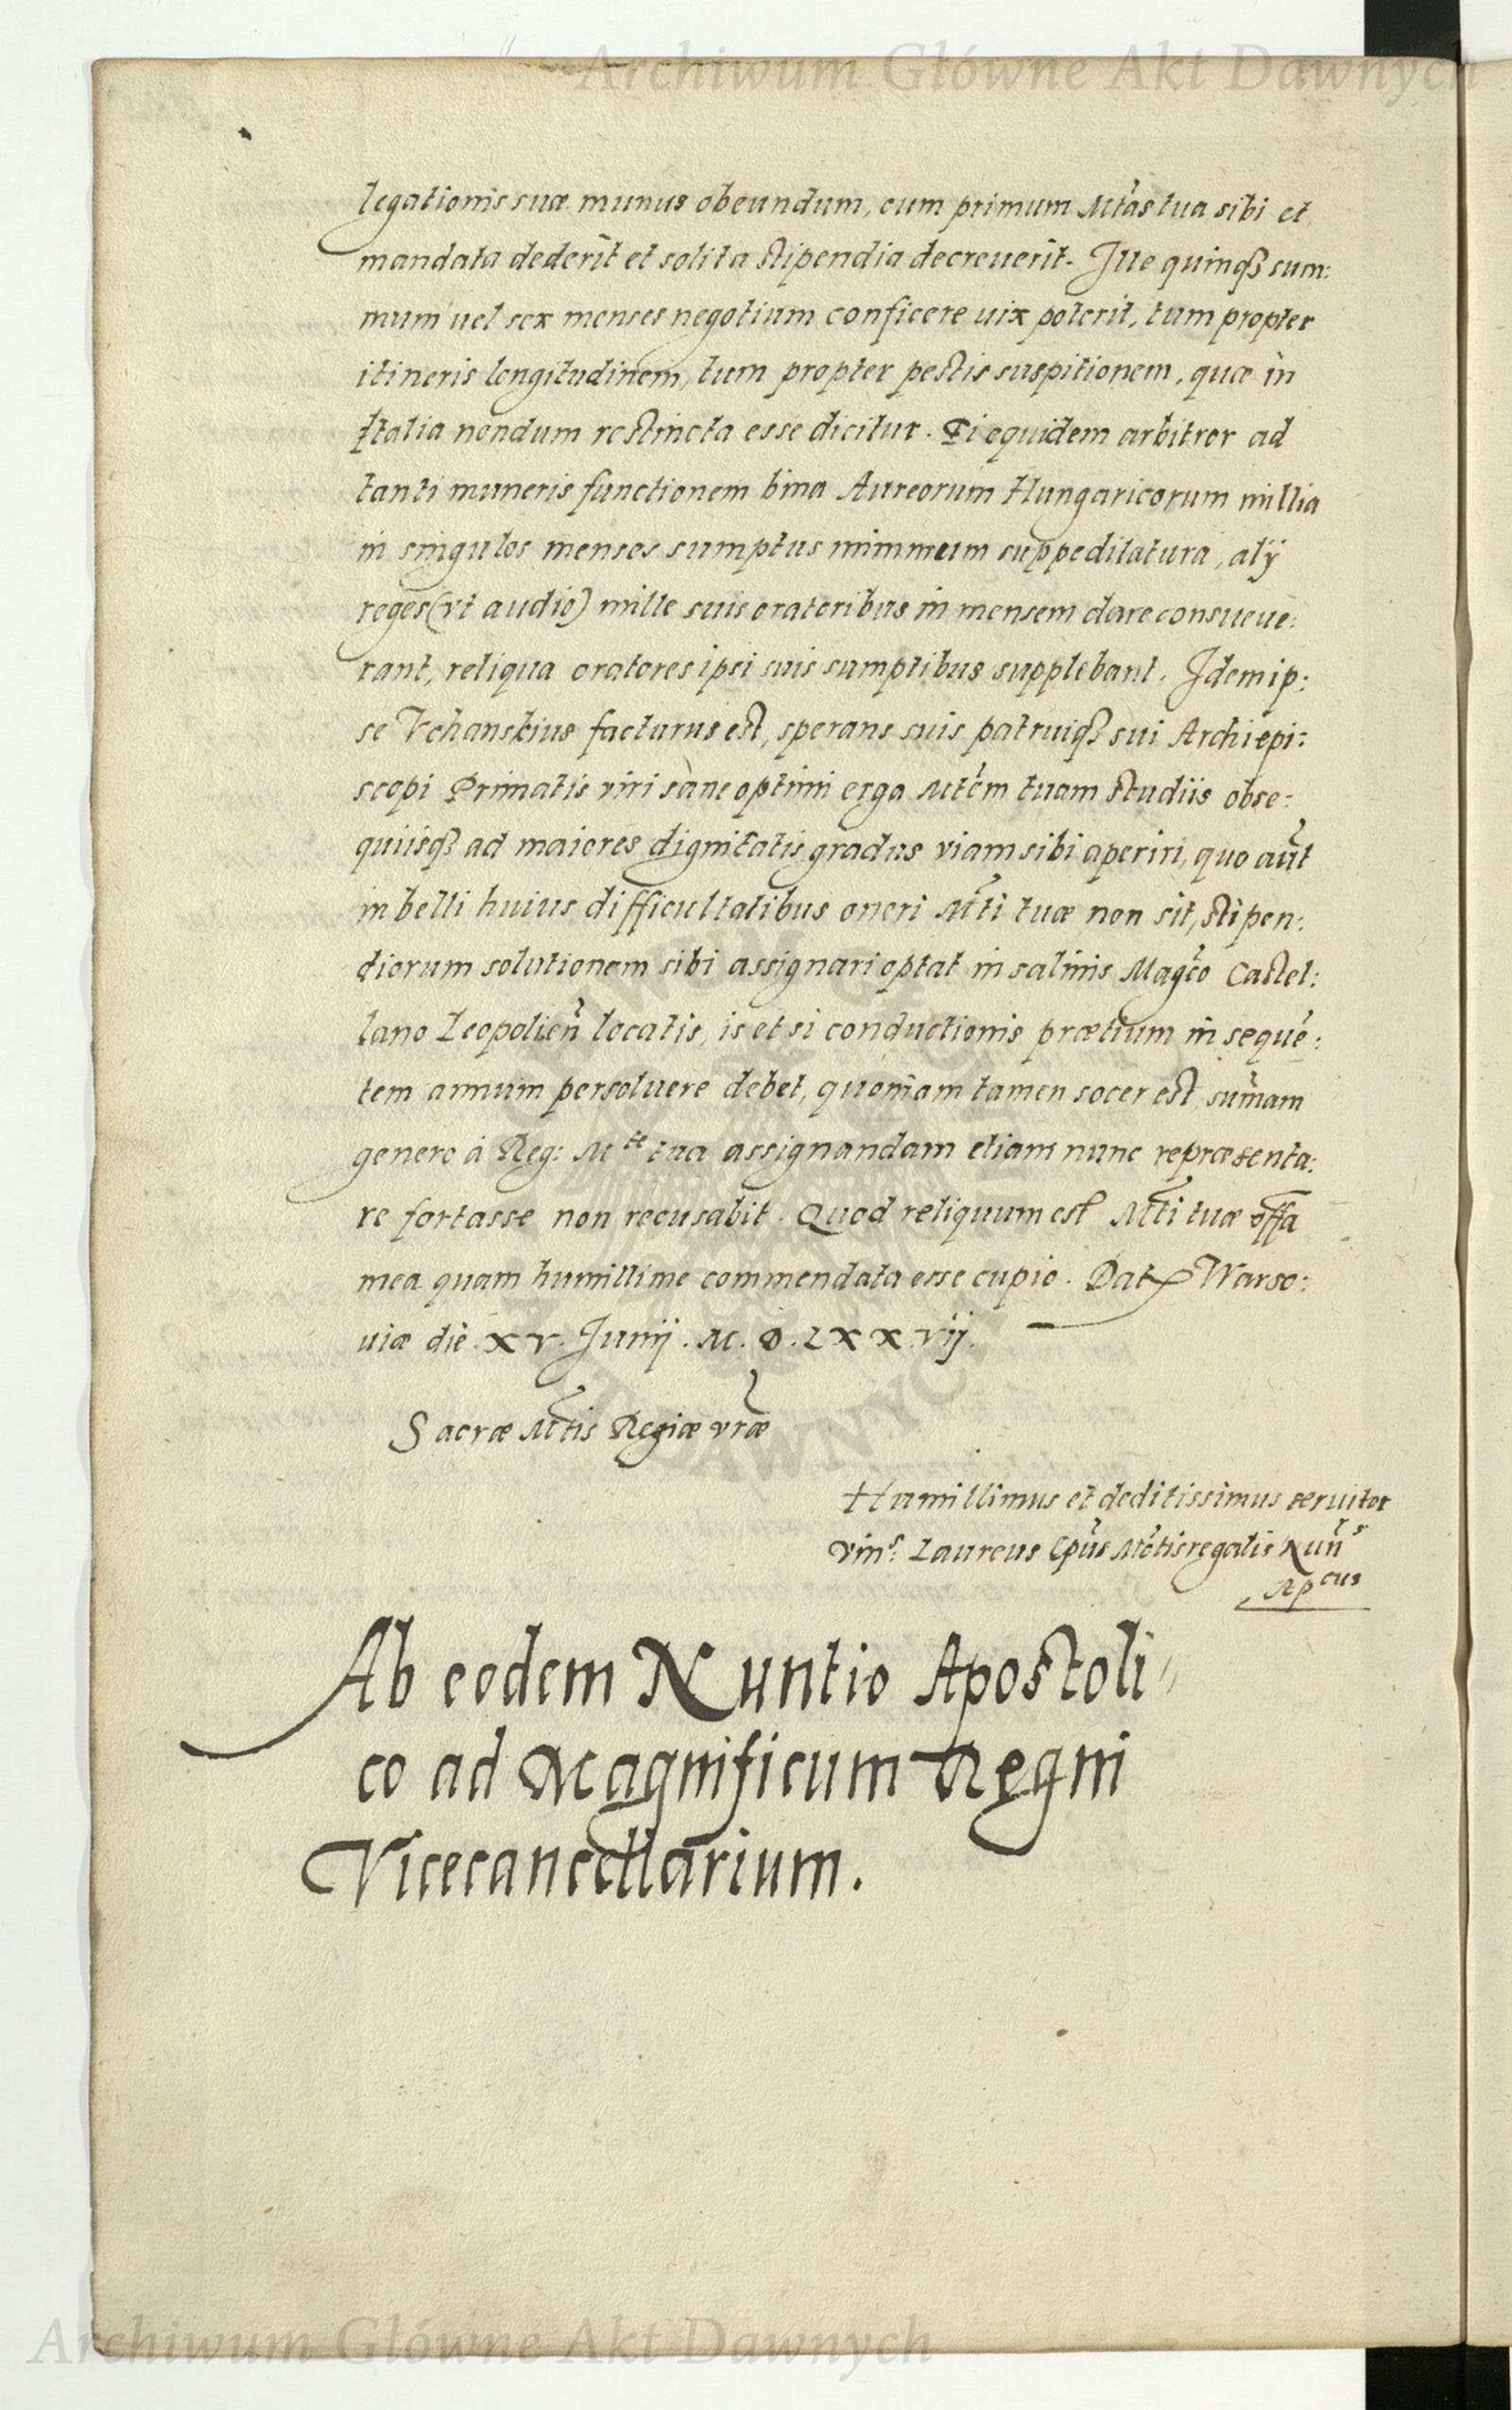 Archiwum Główne Akt Dawnych
legationis suæ munus obeundum, cum primum Mtas tua sibi et
mandata dederit et solita stipendia decreuerit. Ille quinqȝ sum:
mum uel sex menses negotium conficere uix poterit, tum propter
itineris longitudinem, tum propter pestis suspitionem, quæ in
Italia nondum restincta esse dicitur. Ei equidem arbitror ad
tanti muneris functionem bina Aureorum Hungaricorum millia
in singulos menses sumptus suppeditatura, alij
reges (vt audio) mille suis oratoribus in mensem dare consueue:
rant, reliqua oratores ipsi suis sumptibus supplebant. Idem ip:
se Vchanskius facturus est, sperans suis patruiqȝ sui Archiepi:
scopi Primatis viri sane optimi erga Mtem tuam studiis obse:
quiisqȝ ad maiores dignitatis gradus viam sibi aperiri, quo aut
in belli huius difficultatibus oneri Mti tuæ non sit, stipen:
diorum solutionem sibi assignari optat in salinis Magco Castel:
lano Leopolien locatis, is et si conductionis prætium in seque:
tem annum persoluere debet, quoniam tamen socer est, sumam
genero à Reg: Mte tua assignandam etiam nunc repræsenta:
re fortasse non recusabit. Quod reliquum est Mti tuæ offa
mea quam humillime commendata esse cupio. Dat Warso:
uiæ die XV. Junij. M. D. LXXvij.
Sacræ Mtis Regiæ vræ
Humillimus et deditissimus seruitor
Vins: Laureus Epus Motisregalis Nuns
Apcus
Ab eodem Nuntio Apostoli
co ad Magnificum Regni
Vicecancellarium.
Archiwum Główne Akt Dawnych